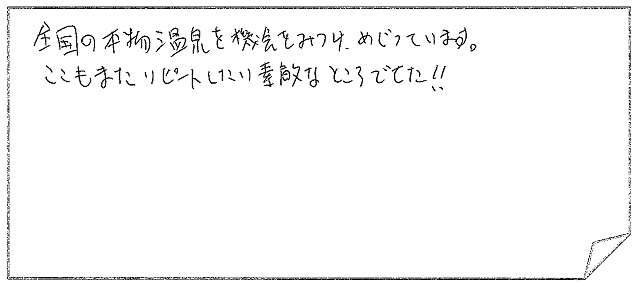 全国の本物温泉を機会をみつけ、めぐっています。
ここもまたリピートしたい素敵なところでした!!